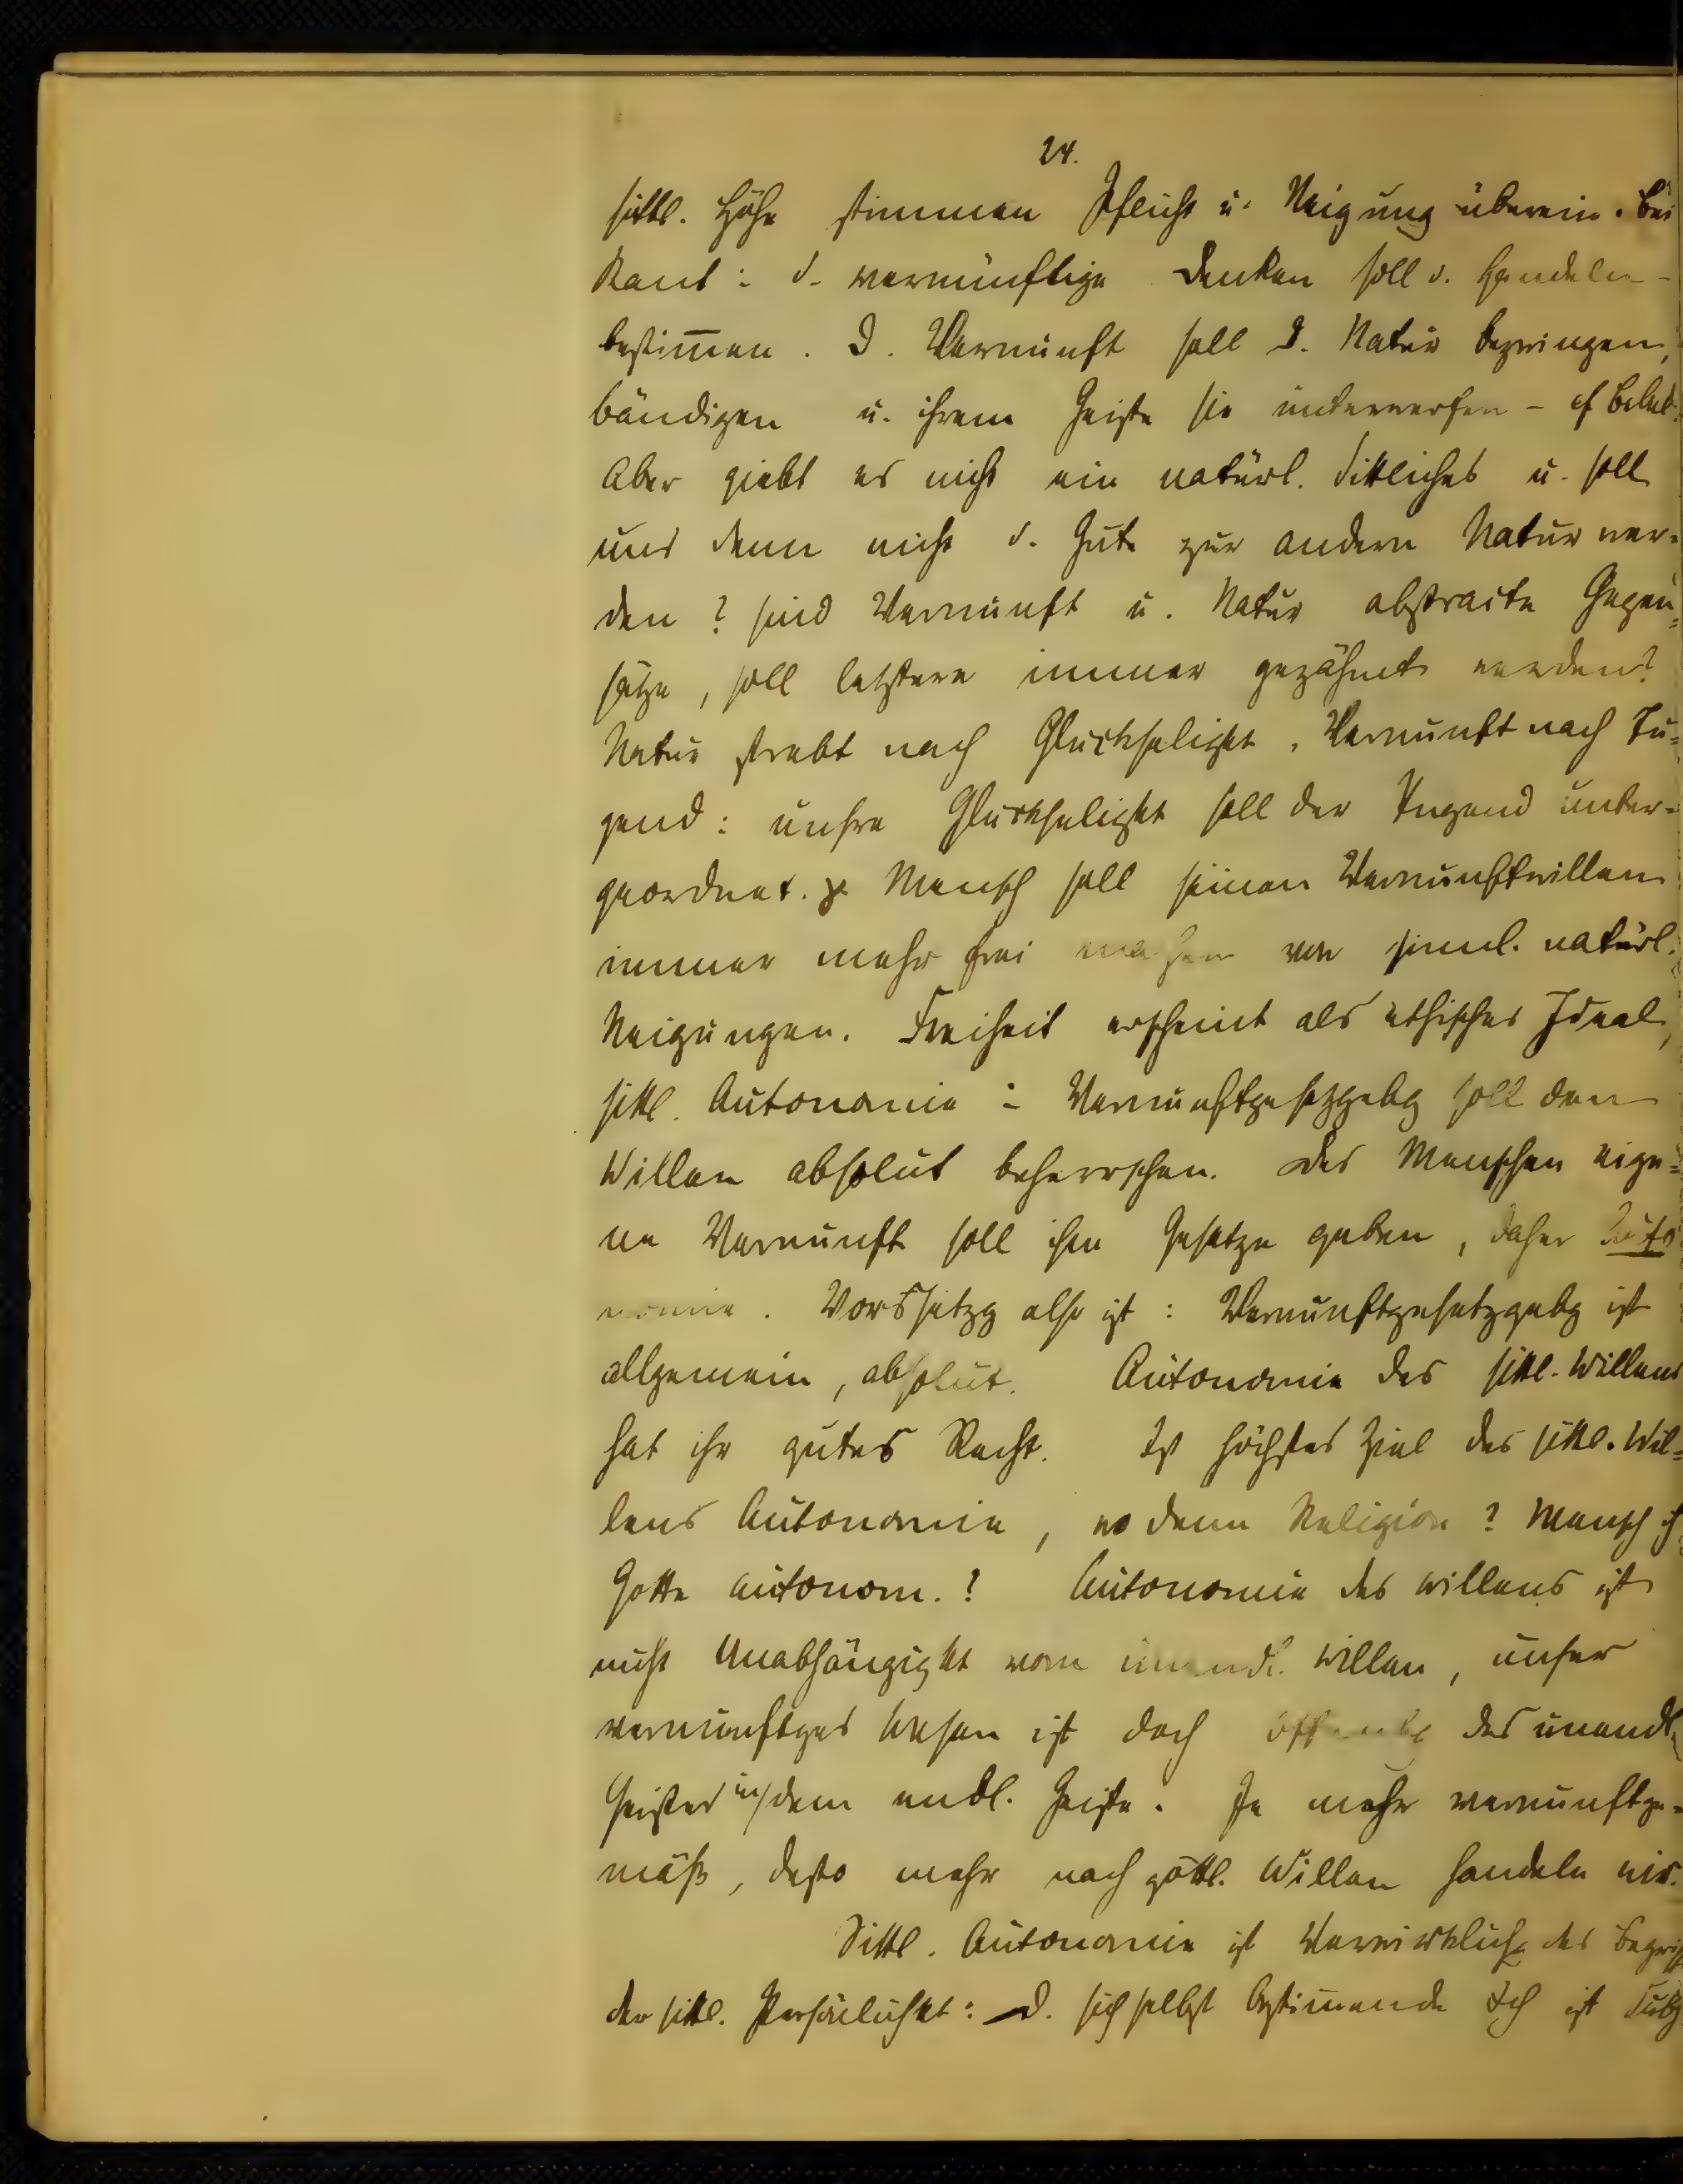 24.
sittl. Höhe stimmen Pflicht u. Neigung überein. Bei
Kant: d. vernünftige Denken soll d. Handeln
bestim̅en. D. Vernunft soll d. Natur bezwingen,
bändigen u. ihrem Geiste sie unterwerfen –
Aber giebt es nicht ein natürl. Sittliches u. soll
uns denn nicht d. Gute zur andern Natur wer-
den? sind Vernunft u. Natur abstracte Gegen-
sätze, soll letztere immer gezähmt werden?
Natur strebt nach Glückseligkt, Vernunft nach Tu-
gend: unsre Glückseligkt soll der Tugend unter-
geordnet. Mensch soll seinen Vernunftwillen
immer mehr frei machen von sinnl. natürl.
Neigungen. Freiheit erscheint als ethisches Ideal,
sittl. Autonomie: Vernunftgesetzgebg soll den
Willen absolut beherrschen. Des Menschen eige-
ne Vernunft soll ihm Gesetze geben, daher Auto
nomie. Vorssetzg also ist: Vernunftgesetzgebg ist
allgemein, absolut. Autonomie des sittl. Willens
hat ihr gutes Recht. Ist höchstes Ziel des sittl. Wil-
lens Autonomie, wo denn Religion? Mensch
Gotte autonom.? Autonomie des Willens ist
nicht Unabhängigkt vom unendl. Willen, unser
vernünftges Wesen ist doch Offenbg des unendl.
Geistes in dem endl. Geiste. Je mehr vernunftge-
mäß, desto mehr nach göttl. Willen handeln wir.
Sittl. Autonomie ist Verwirklichg des Begriff
der sittl. Persönlichkt: D. sich selbst bestimmende Ich ist